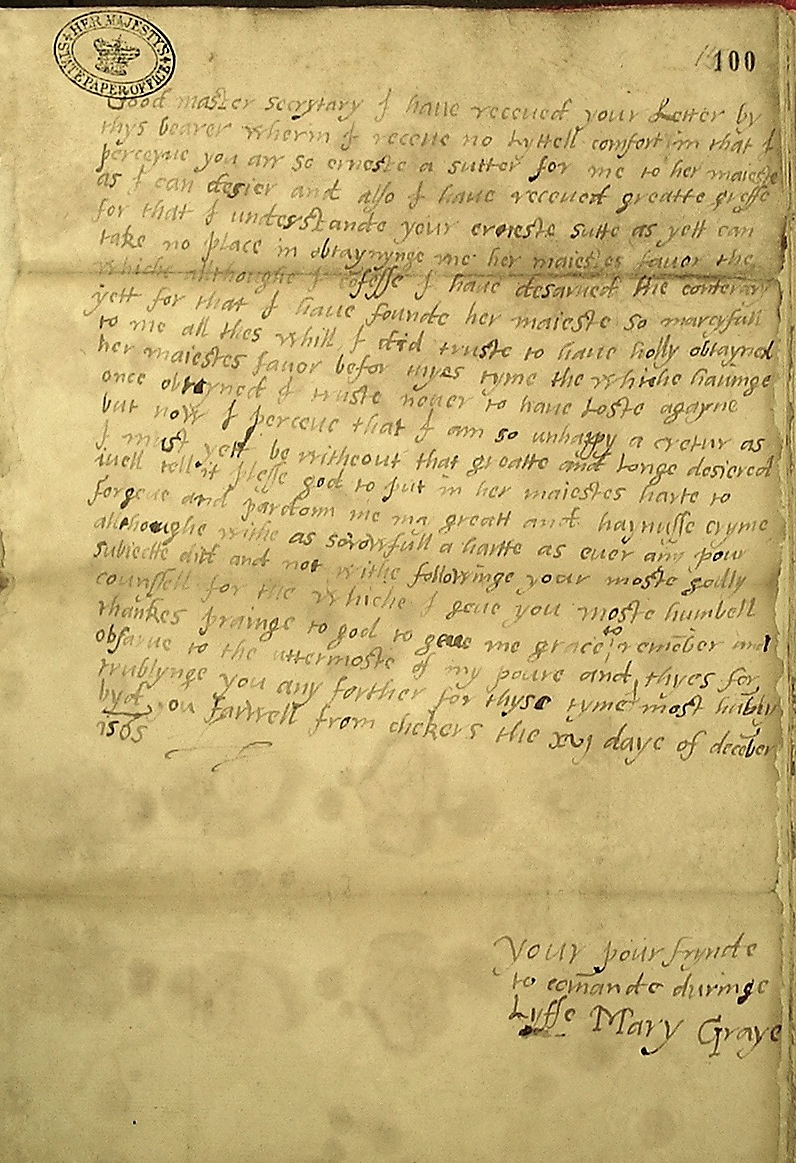 HER MAJESTY'S
STATE PAPER OFFICE
100
Good master secrytary I haue receued your Letter by
thys bearer wherin I receue no Lyttell comfort in that I
perceyue you arr so erneste a sutter for me to her maieste
as I can desier and also I haue receued greatte greffe
for that I understande your erneste sutte as yett can
take no place in obtaynynge me her maiestes fauor the
whiche althoughe I cōfesse I haue desarued the conterary
yett for that I haue founde her maieste so marcyfull
to me all thes whill I did truste to haue holly obtayned
her maiestes fauor befor thys tyme the whiche hauinge
once obtayned I truste neuer to haue Loste agayne
but now I perceue that I am so unhappy a cretur as
I must yett be witheout that greatte and Longe desiered
iuell tell it plesse god to put in her maiestes harte to
forgeue and pardonn me ma greatt and haynusse cryme
althoughe withe as sorowfull a hartte as euer any pour
subiectte did and not withe followinge your moste godly
counssell for the whiche I geue you moste humbell
thankes prainge to god to geue me grace to remēber and
obsarue to the uttermoste of my poure and thyes for
trublynge you any forther for thys tyme most hūbly
byd you farwell from chekers the xvj daye of decēber
1565
your pour frynde
to cōmande duringe
Lyffe Mary Graye